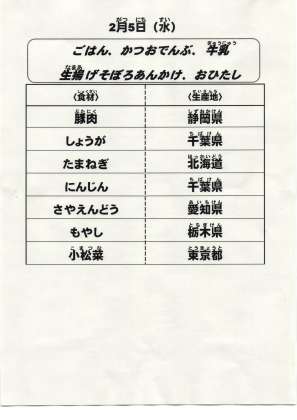 2月5日（水）
ごはん、かつおでんぶ、牛乳
生揚げそぼろあんかけ、おひたし
〈食材〉 〈生産地〉
豚肉 静岡県
しょうが 千葉県
たまねぎ 北海道
にんじん 千葉県
さやえんどう 愛知県
もやし 栃木県
小松菜 東京都